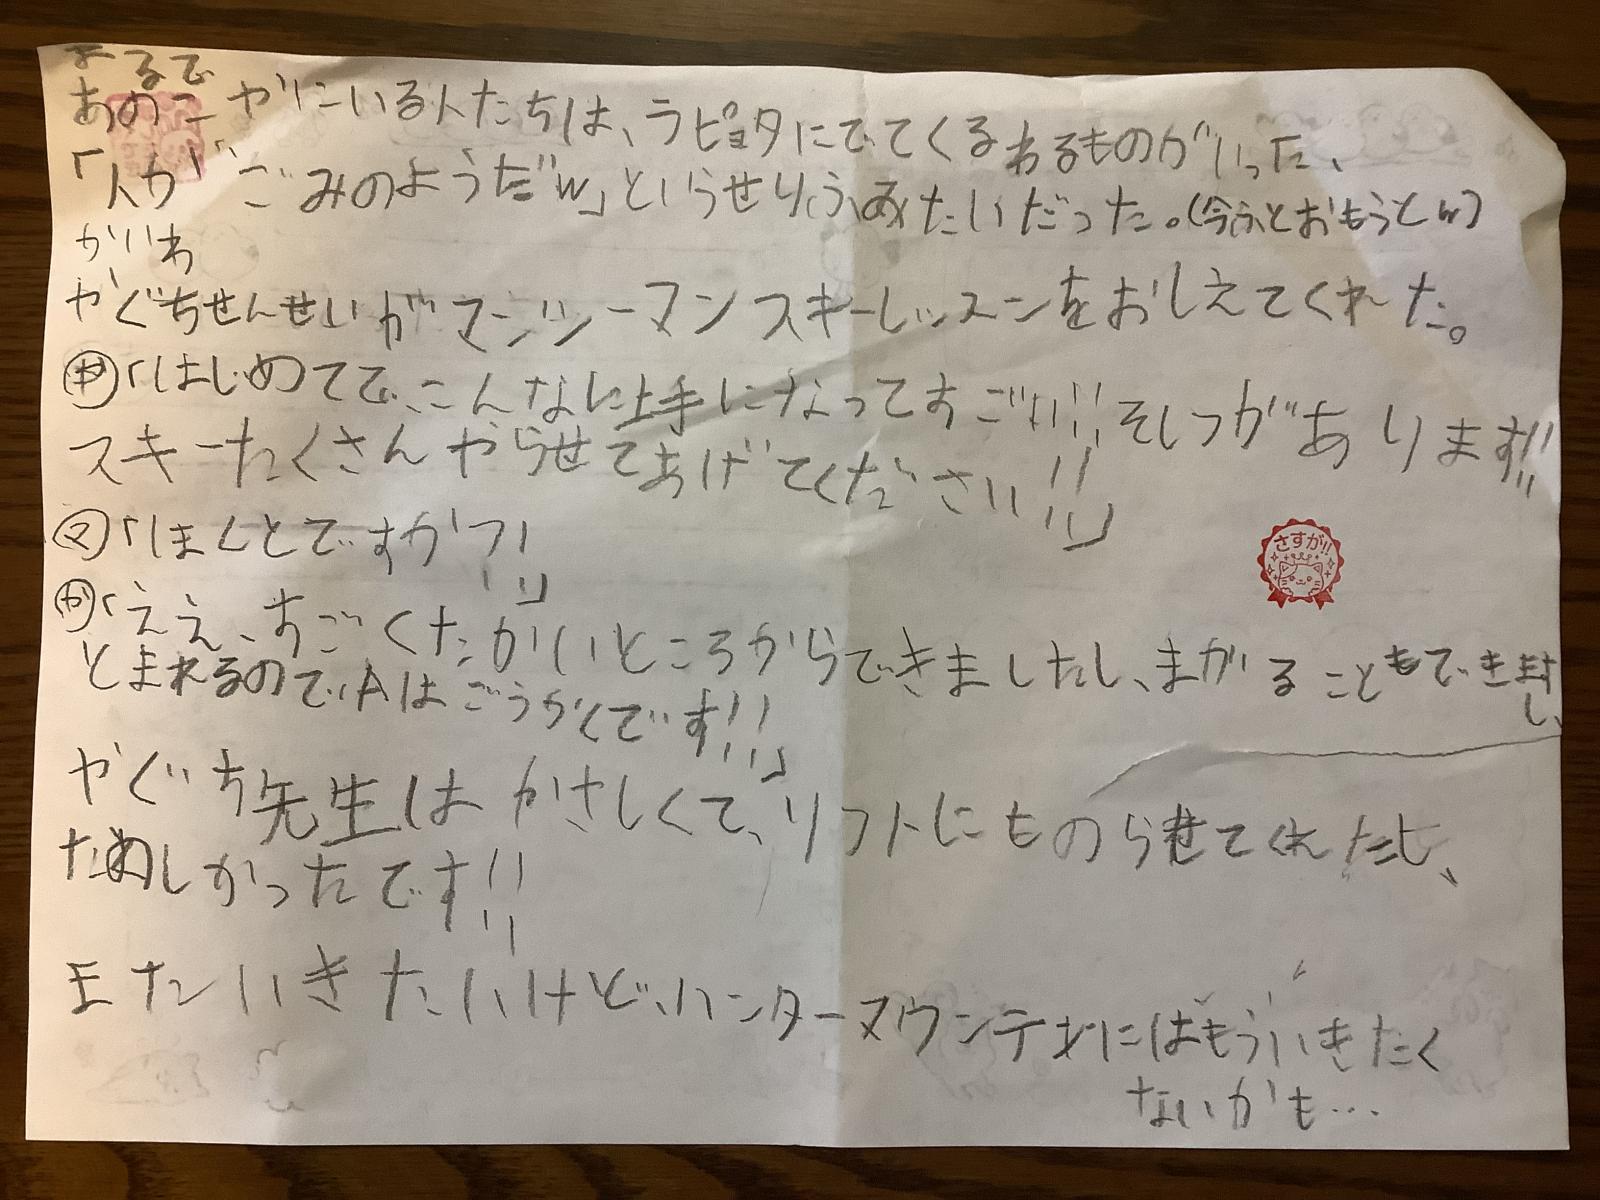 まるで
あのこやにいる人たちは、ラピュタにでてくるわるものがいった、
「人がごみのようだw」というせりふみたいだった。(今ふとおもうとw)
かいわ
やぐちせんせいがマンツーマンスキーレッスンをおしえてくれた。
や「はじめてで、こんなに上手になってすごい!!そしつがあります!!
スキーたくさんやらせてあげてください!!」
マ「ほんとですか?!」
や「ええ、すごくたかいところからできましたし、まがることもできますし、
とまれるので、Aはごうかくです!!」
さすが!!
やぐち先生はやさしくて、リフトにものらせてくれたし、
たのしかったです!!
またいきたいけど、ハンターマウンテンにはもういきたく
ないかも…